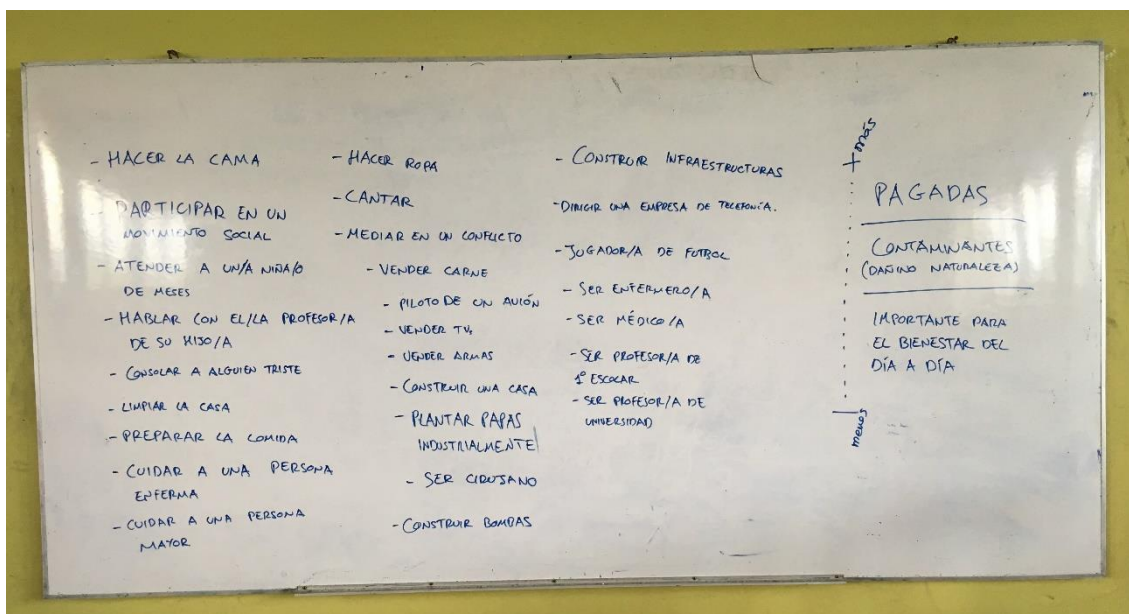 - HACER LA CAMA
- PARTICIPAR EN UN
MOVIMIENTO SOCIAL
- ATENDER A UN/A NIÑA/O
DE MESES
- HABLAR CON EL/LA PROFESOR/A
DE SU HIJO/A
- CONSOLAR A ALGUIEN TRISTE
- LIMPIAR LA CASA
- PREPARAR LA COMIDA
- CUIDAR A UNA PERSONA
ENFERMA
- CUIDAR A UNA PERSONA
MAYOR
- HACER ROPA
- CANTAR
- MEDIAR EN UN CONFLICTO
- VENDER CARNE
- PILOTO DE UN AVIÓN
- VENDER TV,
- VENDER ARMAS
- CONSTRUIR UNA CASA
- PLANTAR PAPAS
INDUSTRIALMENTE
- SER CIRUJANO
- CONSTRUIR BOMBAS
- CONSTRUIR INFRAESTRUCTURAS
- DIRIGIR UNA EMPRESA DE TELEFONÍA.
- JUGADOR/A DE FUTBOL
- SER ENFERMERO/A
- SER MÉDICO/A
- SER PROFESOR/A DE
1º ESCOLAR
- SER PROFESOR/A DE
UNIVERSIDAD
+ más
menos
PAGADAS
CONTAMINANTES
(DAÑINO NATURALEZA)
IMPORTANTE PARA
EL BIENESTAR DEL
DÍA A DÍA